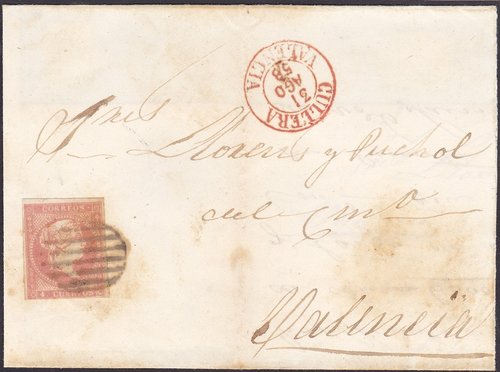 CULLERA
31
AGO
58
VALENCIA
Sres
Llorens y Puchol
del
CORREOS
4 CUARTOS
Valencia